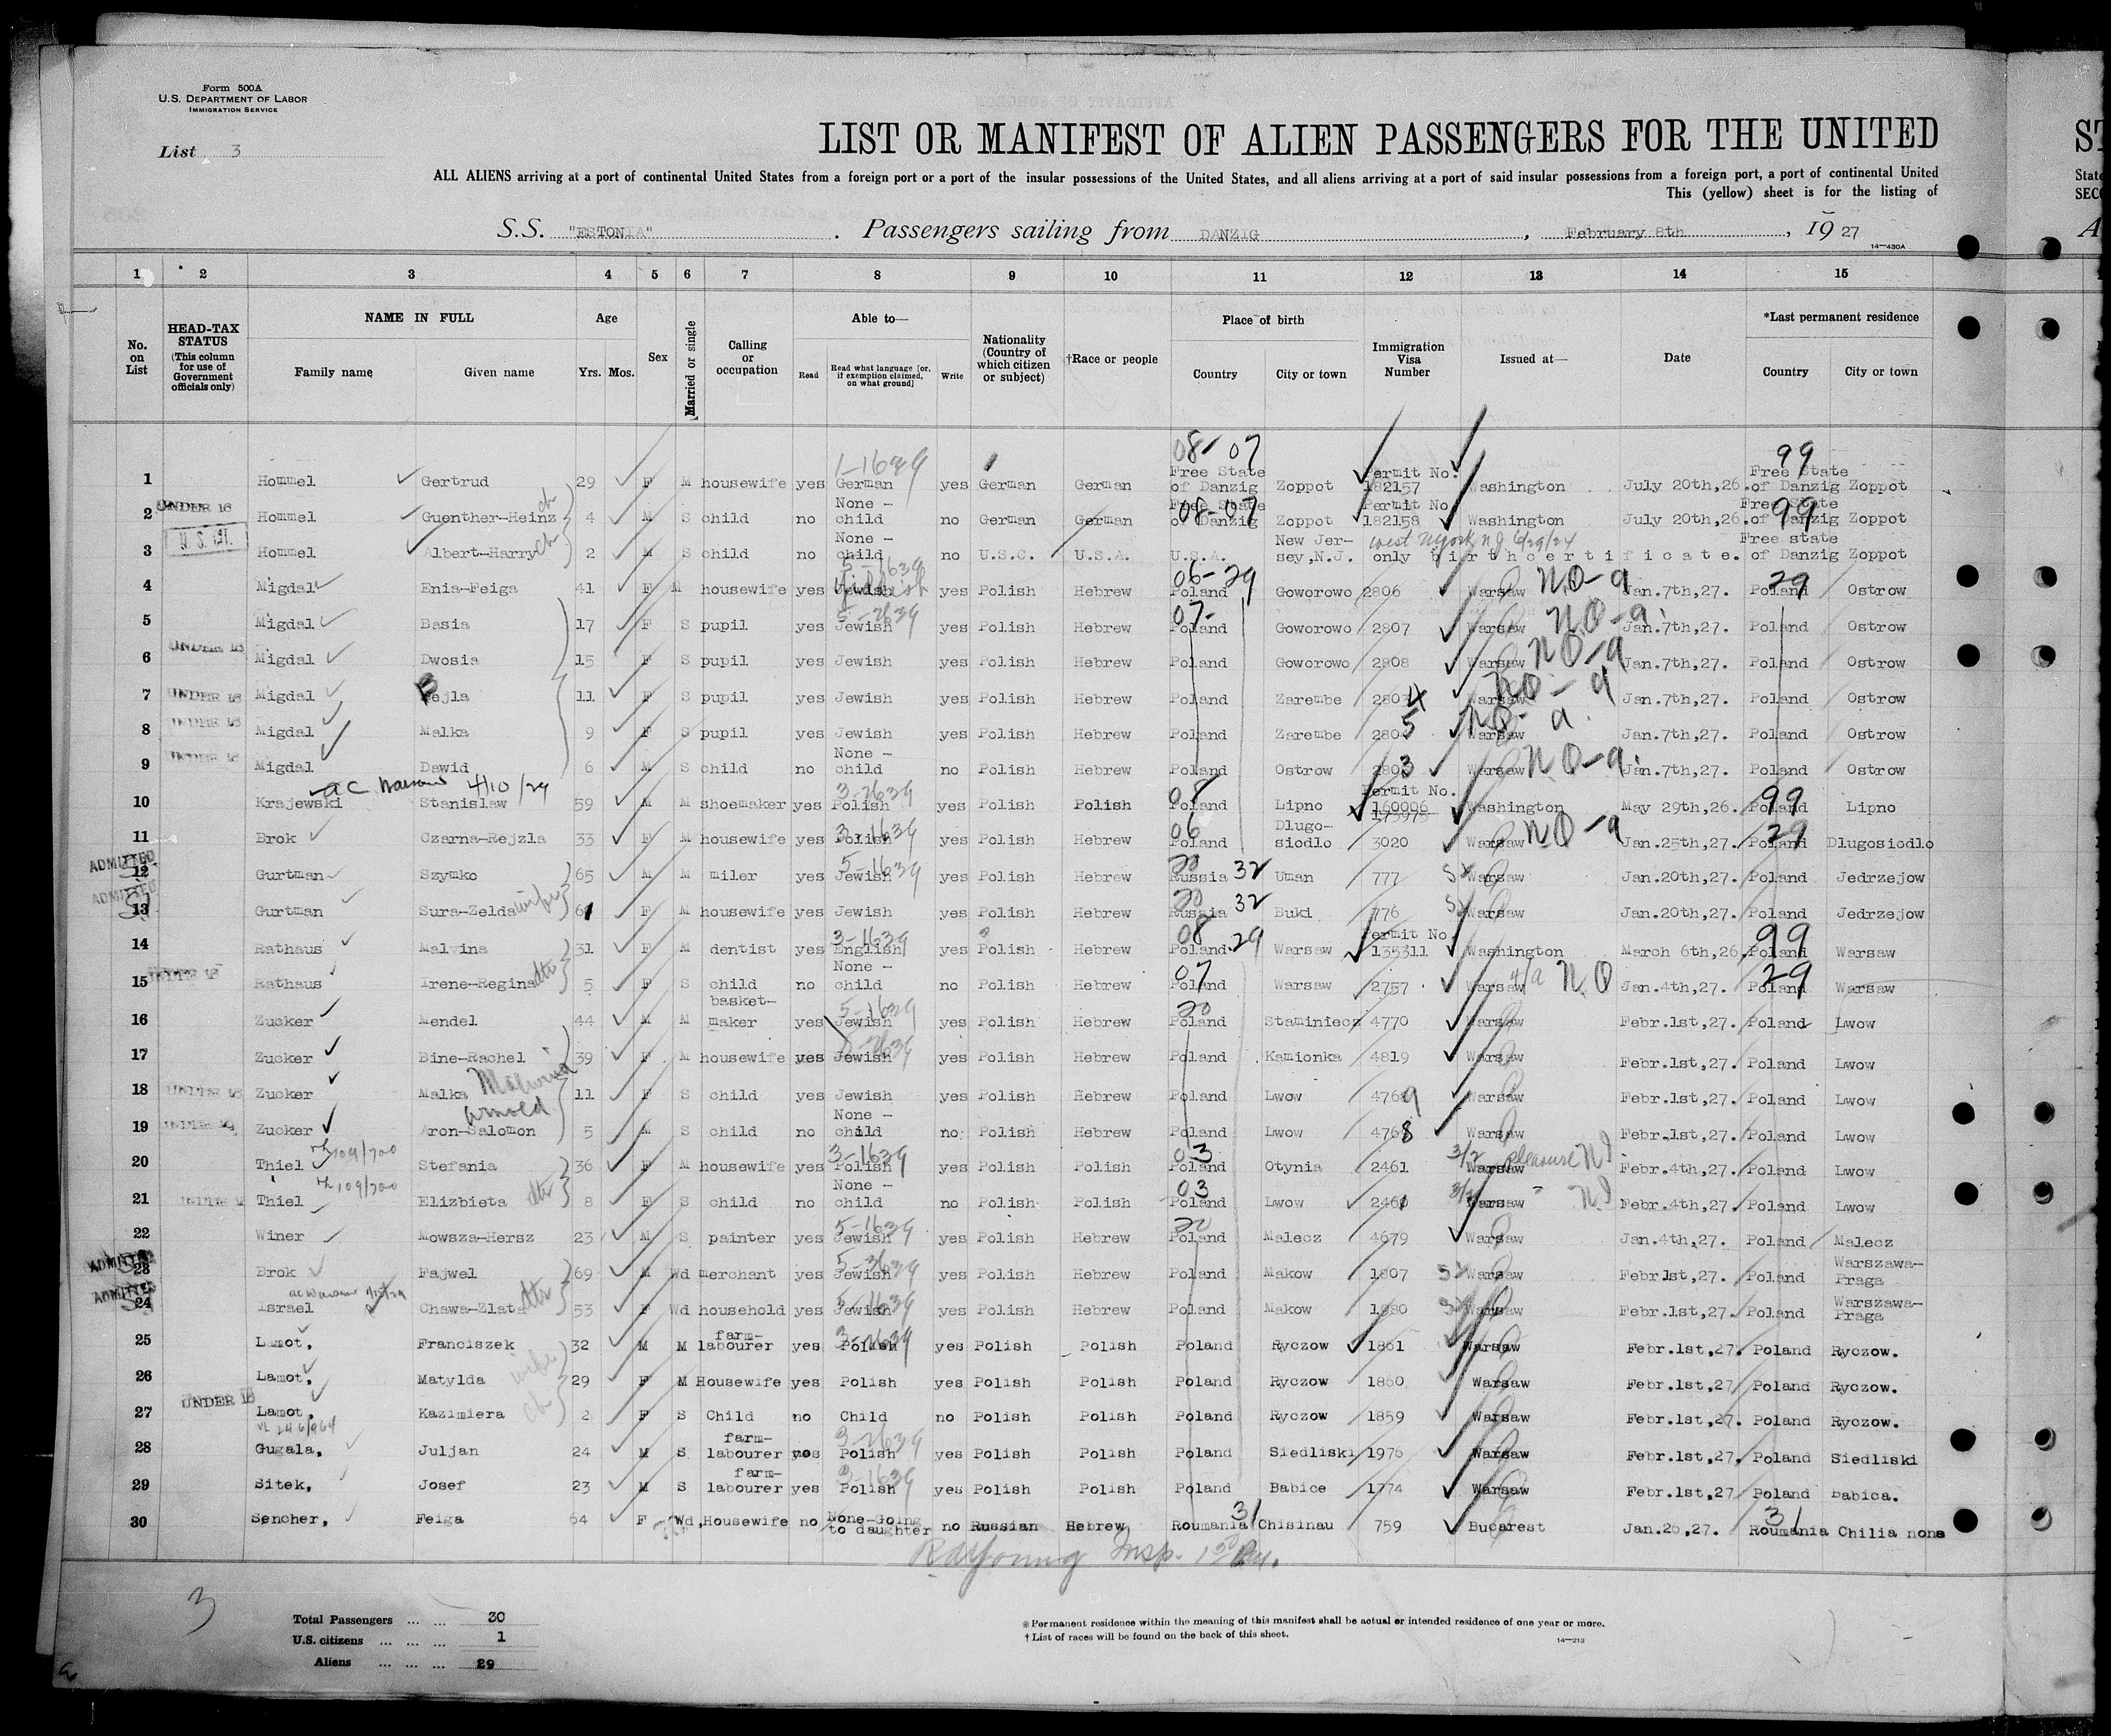 Form 500A
U.S. DEPARTMENT OF LABOR
IMMIGRATION SERVICE
List 3
LIST OR MANIFEST OF ALIEN PASSENGERS FOR THE UNITED
ALL ALIENS arriving at a port of continental United States from a foreign port or a port of the insular possessions of the United States, and all aliens arriving at a port of said insular possessions from a foreign port, a port of continental United
This (yellow) sheet is for the listing of
S.S. "ESTONIA". Passengers sailing from DANZIG, February 8th, 1927
14—430A
1 2 3 4 5 6 7 8 9 10 11 12 13 14 15
No. on List
HEAD-TAX STATUS (This column for use of Government officials only)
NAME IN FULL
Family name Given name
Age
Yrs. Mos.
Sex
Married or single
Calling or occupation
Able to—
Read Read what language [or, if exemption claimed, on what ground] Write
Nationality (Country of which citizen or subject)
†Race or people
Place of birth
Country City or town
Immigration Visa Number
Issued at—
Date
*Last permanent residence
Country City or town
1 Hommel Gertrud 29 F M housewife yes German yes German German Free State of Danzig Zoppot Permit No. 182157 Washington July 20th,26. Free State of Danzig Zoppot
08-07 99
2 UNDER 16 Hommel Guenther-Heinz 4 M S child no None - child no German German Free State of Danzig Zoppot Permit No. 182158 Washington July 20th,26. Free State of Danzig Zoppot
08-07 99
3 Hommel Albert-Harry 2 M S child no None - child no U.S.C. U.S.A. U.S.A. New Jersey,N.J. only birthcertificate. Free state of Danzig Zoppot
4 Migdal Enia-Feiga 41 F M housewife yes Jewish Yiddish yes Polish Hebrew Poland Goworowo 2806 Warsaw NO-a Jan.7th,27. Poland Ostrow
06-29 29
5 Migdal Basia 17 F S pupil yes Jewish yes Polish Hebrew Poland Goworowo 2807 Warsaw NO-a Jan.7th,27. Poland Ostrow
6 UNDER 16 Migdal Dwosia 15 F S pupil yes Jewish yes Polish Hebrew Poland Goworowo 2808 Warsaw NO-a Jan.7th,27. Poland Ostrow
7 UNDER 16 Migdal Fejla 11 F S pupil yes Jewish yes Polish Hebrew Poland Zarembe 2804 Warsaw NO-a Jan.7th,27. Poland Ostrow
8 UNDER 16 Migdal Malka 9 F S pupil yes Jewish yes Polish Hebrew Poland Zarembe 2805 Warsaw NO-a. Jan.7th,27. Poland Ostrow
9 UNDER 16 Migdal Dawid 6 M S child no None - child no Polish Hebrew Poland Ostrow 2803 Warsaw NO-a. Jan.7th,27. Poland Ostrow
10 Krajewski Stanislaw 59 M M shoemaker yes Polish yes Polish Polish Poland Lipno Permit No. 160096 173975 Washington May 29th,26. Poland Lipno
08 99
11 Brok Czarna-Rejzla 33 F M housewife yes Polish yes Polish Hebrew Poland Dlugo-siodlo 3020 Warsaw NO-a Jan.25th,27. Poland Dlugosiodlo
06 29
ADMITTED
12 Gurtman Szymko 65 M M miler yes Jewish yes Polish Hebrew Russia 32 Uman 777 Warsaw Jan.20th,27. Poland Jedrzejow
ADMITTED
13 Gurtman Sura-Zelda wife 61 F M housewife yes Jewish yes Polish Hebrew Russia 32 Buki 776 Warsaw Jan.20th,27. Poland Jedrzejow
14 Rathaus Malvina 31 F M dentist yes English yes Polish Hebrew Poland 29 Warsaw Permit No. 135311 Washington March 6th,26. Poland Warsaw
08 99
15 UNDER 16 Rathaus Irene-Regina dtr 5 F S child no None - child no Polish Hebrew Poland Warsaw 2757 Warsaw NO Jan.4th,27. Poland Warsaw
07 29
16 Zucker Mendel 44 M M basket-maker yes Jewish yes Polish Hebrew Poland Staminiecz 4770 Warsaw Febr.1st,27. Poland Lwow
17 Zucker Bine-Rachel 39 F M housewife yes Jewish yes Polish Hebrew Poland Kamionka 4819 Warsaw Febr.1st,27. Poland Lwow
18 UNDER 16 Zucker Malka 11 F S child yes Jewish yes Polish Hebrew Poland Lwow 4769 Warsaw Febr.1st,27. Poland Lwow
Arnold
19 UNDER 16 Zucker Aron-Salomon 5 M S child no None - child no Polish Hebrew Poland Lwow 4768 Warsaw Febr.1st,27. Poland Lwow
20 Thiel Stefania 36 F M housewife yes Polish yes Polish Polish Poland Otynia 2461 Warsaw pleasure Febr.4th,27. Poland Lwow
03
21 UNDER 16 Thiel Elizbieta dtr 8 F S child no None - child no Polish Polish Poland Lwow 2461 Warsaw Febr.4th,27. Poland Lwow
03
22 Winer Mowsza-Hersz 23 M S painter yes Jewish yes Polish Hebrew Poland Malecz 4679 Warsaw Jan.4th,27. Poland Malecz
ADMITTED
23 Brok Fajwel 69 M Wd merchant yes Jewish yes Polish Hebrew Poland Makow 1807 Warsaw Febr1st,27. Poland Warszawa-Praga
ADMITTED
24 Israel Chawa-Zlata dtr 53 F Wd household yes Jewish yes Polish Hebrew Poland Makow 1980 Warsaw Febr.1st,27. Poland Warszawa-Praga
25 Lamot, Franciszek 32 M M farm-labourer yes Polish yes Polish Polish Poland Ryczow 1861 Warsaw Febr.1st,27. Poland Ryczow.
26 Lamot, Matylda wife 29 F M Housewife yes Polish yes Polish Polish Poland Ryczow 1860 Warsaw Febr.1st,27 Poland Ryczow.
27 UNDER 16 Lamot, Kazimiera ch 2 F S Child no Child no Polish Polish Poland Ryczow 1859 Warsaw Febr.1st,27. Poland Ryczow.
28 Gugala, Juljan 24 M S farm-labourer yes Polish yes Polish Polish Poland Siedliski 1976 Warsaw Febr.1st,27. Poland Siedliski
29 Sitek, Josef 23 M S farm-labourer yes Polish yes Polish Polish Poland Babice 1774 Warsaw Febr.1st,27 Poland Babica.
30 Sencher, Feiga 64 F Wd, Housewife no None-Going to daughter no Russian Hebrew Roumania Chisinau 759 Bucarest Jan.26,27. Roumania Chilia nona
31 31
3
Total Passengers 30
U.S. citizens 1
Aliens 29
*Permanent residence within the meaning of this manifest shall be actual or intended residence of one year or more.
†List of races will be found on the back of this sheet.
14—213